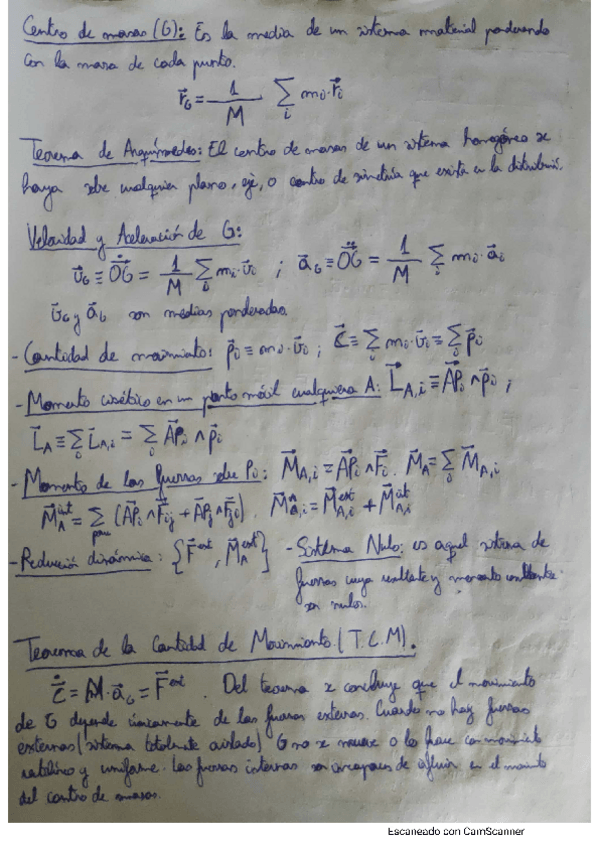 Centro de masas (G): Es la media de un sistema material ponderando
con la masa de cada punto.
r⃗_G = 1/M Σ_i m_i · r⃗_i
Teorema de Arquímedes: El centro de masas de un sistema homogéneo se
haya sobre cualquier plano, eje, o centro de simetría que exista en la distribuci.
Velocidad y Aceleración de G:
v⃗_G ≡ d(OG⃗)/dt = 1/M Σ_i m_i · v⃗_i ; a⃗_G ≡ d²(OG⃗)/dt² = 1/M Σ_i m_i · a⃗_i
v⃗_G y a⃗_G son medias ponderadas.
- Cantidad de movimiento: p⃗_i ≡ m_i · v⃗_i ; C⃗ ≡ Σ_i m_i · v⃗_i = Σ_i p⃗_i
- Momento cinético en un punto móvil cualquiera A: L⃗_A,i ≡ AP⃗_i ∧ p⃗_i ;
L⃗_A ≡ Σ_i L⃗_A,i = Σ_i AP⃗_i ∧ p⃗_i
- Momento de las fuerzas sobre P_i: M⃗_A,i = AP⃗_i ∧ F⃗_i . M⃗_A = Σ_i M⃗_A,i
M⃗_A^int = Σ_pares (AP⃗_i ∧ F⃗_ij + AP⃗_j ∧ F⃗_ji). M⃗_A,i = M⃗_A,i^ext + M⃗_A,i^int
- Reducción dinámica: {F⃗^ext, M⃗_A^ext} - Sistema Nulo: es aquel sistema de
fuerzas cuya resultante y momento resultante
son nulos.
Teorema de la Cantidad de Movimiento. (T.C.M).
dC⃗/dt = M · a⃗_G = F⃗^ext . Del teorema se concluye que el movimiento
de G depende únicamente de las fuerzas externas. Cuando no hay fuerzas
externas (sistema totalmente aislado) G no se mueve o lo hace con movimiento
rectilíneo y uniforme. Las fuerzas internas son incapaces de influir en el movimiento
del centro de masas.
Escaneado con CamScanner